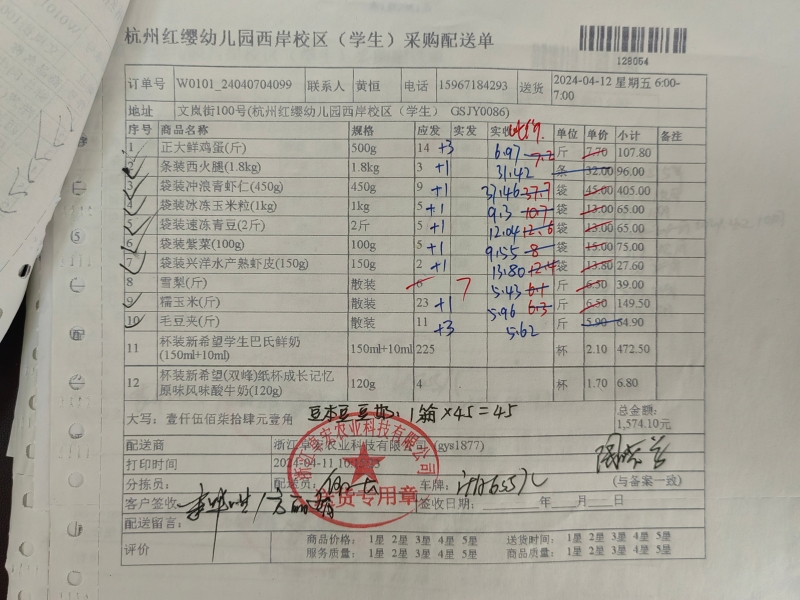 杭州红缨幼儿园西岸校区（学生）采购配送单
128054
订单号 W0101_24040704099 联系人 黄恒 电话 15967184293 送货 2024-04-12 星期五 6:00-7:00
地址 文岚街100号(杭州红缨幼儿园西岸校区（学生） GSJY0086)
序号 商品名称 规格 应发 实发 实收 单位 单价 小计 备注
1 正大鲜鸡蛋(斤) 500g 14 +3 6.97 7.2 斤 7.70 107.80
2 条装西火腿(1.8kg) 1.8kg 3 +1 31.42 条 32.00 96.00
3 袋装冲浪青虾仁(450g) 450g 9 +1 37.46 37.7 袋 45.00 405.00
4 袋装冰冻玉米粒(1kg) 1kg 5 +1 9.3 10.7 袋 13.00 65.00
5 袋装速冻青豆(2斤) 2斤 5 +1 12.04 12.6 袋 13.00 65.00
6 袋装紫菜(100g) 100g 5 +1 9.55 8 袋 15.00 75.00
7 袋装兴洋水产熟虾皮(150g) 150g 2 +1 13.80 12.4 袋 13.80 27.60
8 雪梨(斤) 散装 6 7 5.43 6.1 斤 6.50 39.00
9 糯玉米(斤) 散装 23 +1 5.96 6.3 斤 6.50 149.50
10 毛豆夹(斤) 散装 11 +3 5.62 斤 5.90 64.90
11 杯装新希望学生巴氏鲜奶(150ml+10ml) 150ml+10ml 225 杯 2.10 472.50
12 杯装新希望(双峰)纸杯成长记忆原味风味酸牛奶(120g) 120g 4 杯 1.70 6.80
大写：壹仟伍佰柒拾肆元壹角 豆本豆豆奶：1箱×45=45 总金额：1,574.10元
配送商 浙江 农业科技有限公司 (gys1877)
打印时间 2024-04-11
分拣员： 配送员： 车牌： (与备案一致)
客户签收： 送货专用章 签收日期： 年 月 日
配送留言：
评价 商品价格： 1星 2星 3星 4星 5星 送货时间： 1星 2星 3星 4星 5星
服务质量： 1星 2星 3星 4星 5星 商品质量： 1星 2星 3星 4星 5星